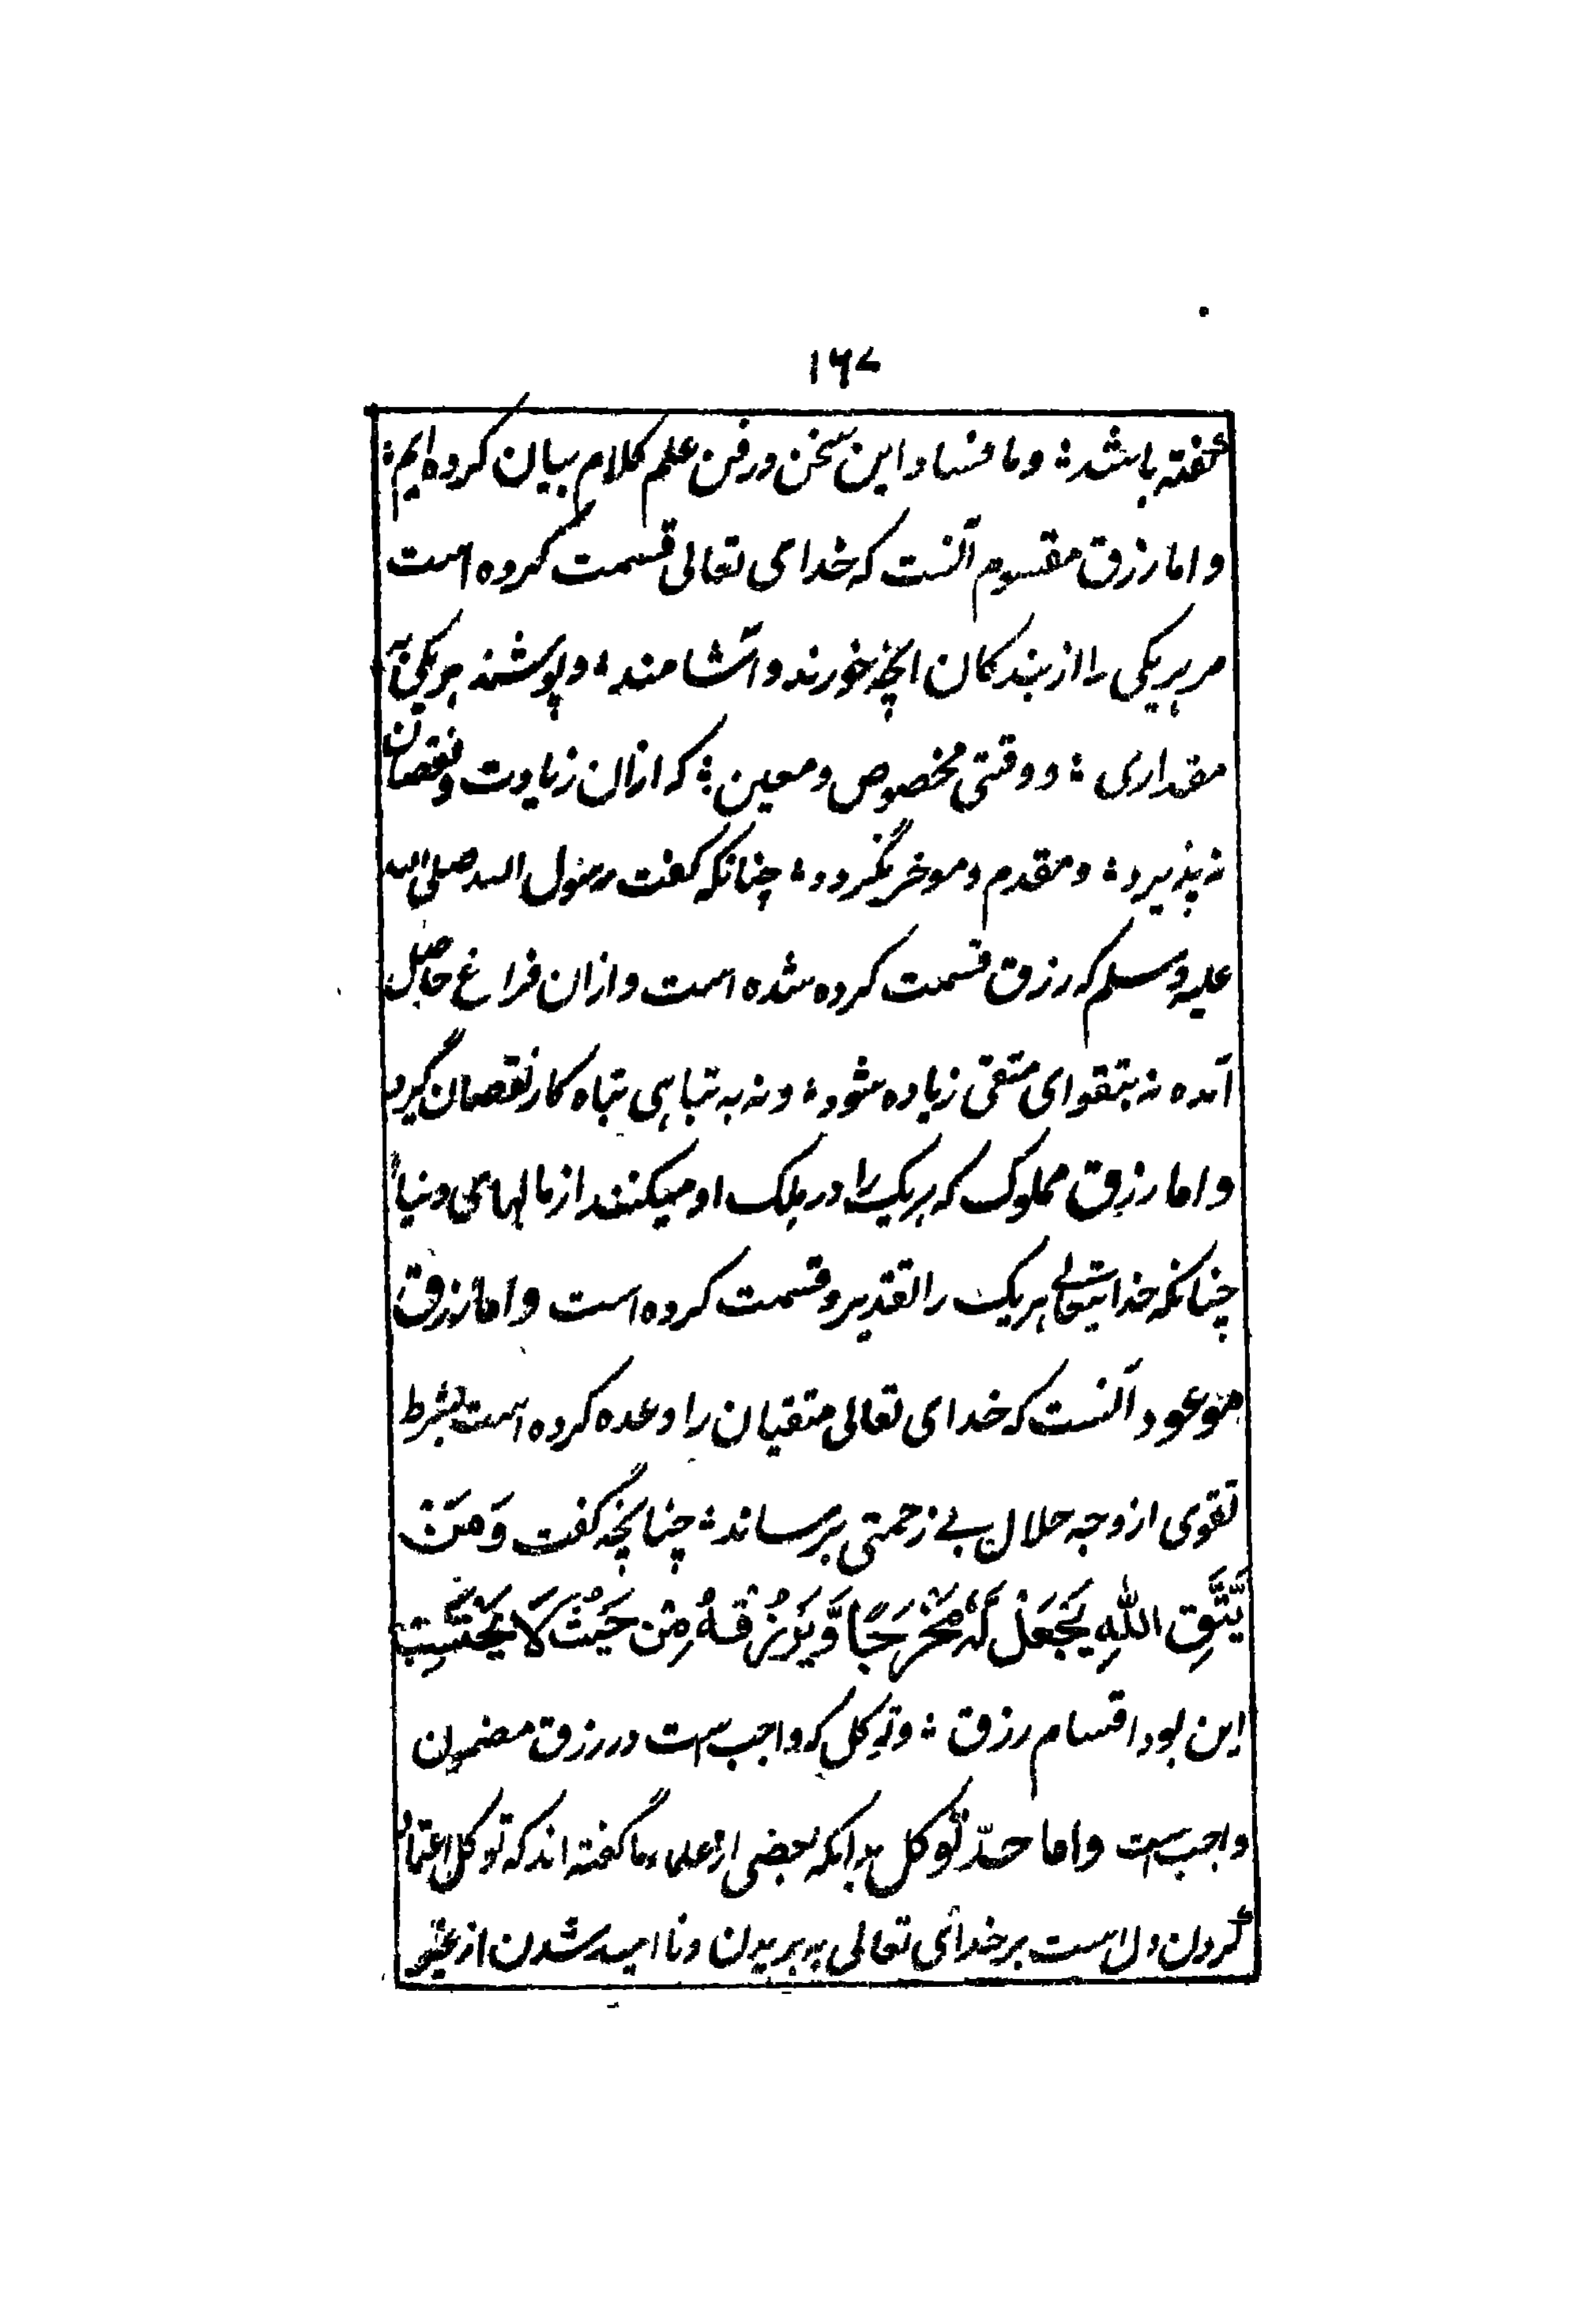 ۱۶۷
گفته باشد؛ و ما فساد این سخن در فن علم کلام بیان کرده ایم؛
و اما رزق مقسوم آنست که خدای تعالی قسمت کرده است
مر هر یکی را از بندکان انچه خورند و آشامند؛ و پوشند هر یکی را
مقداری؛ و وقتی مخصوص و معین؛ که ازان زیادت و نقصان
نه پذیرد؛ و مقدم و موخر نگردد؛ چنانکه گفت رسول الله صلی الله
علیه وسلم که رزق قسمت کرده شده است و ازان فراغ حاصل
آمده نه بتقوای متقی زیاده شود؛ و نه به تباهی تباه کار نقصان گیرد
و اما رزق مملوک که هر یک را در ملک او میکنند از مالهای دنیا
چنانکه خدایتعالی هر یک را تقدیر و قسمت کرده است و اما رزق
موعود آنست که خدای تعالی متقیان را وعده کرده است بشرط
تقوی از وجه حلال بے زحمتی برساند؛ چنانچه گفت وَمَنْ
یَّتَّقِ اللّٰهِ یَجْعَلْ لَهُ مَخْرَجًا وَّیَرْزُقْهُ مِنْ حَیْثُ لَا یَحْتَسِبُ
این بود اقسام رزق؛ و توکل که واجب ست در رزق مضمون
واجب ست و اما حدّ توکل بدانکه بعضی از علماء ما گفته اند که توکل اعتماد
کردن دل است بر خدای تعالی به بریدن و نا امید شدن از غیر